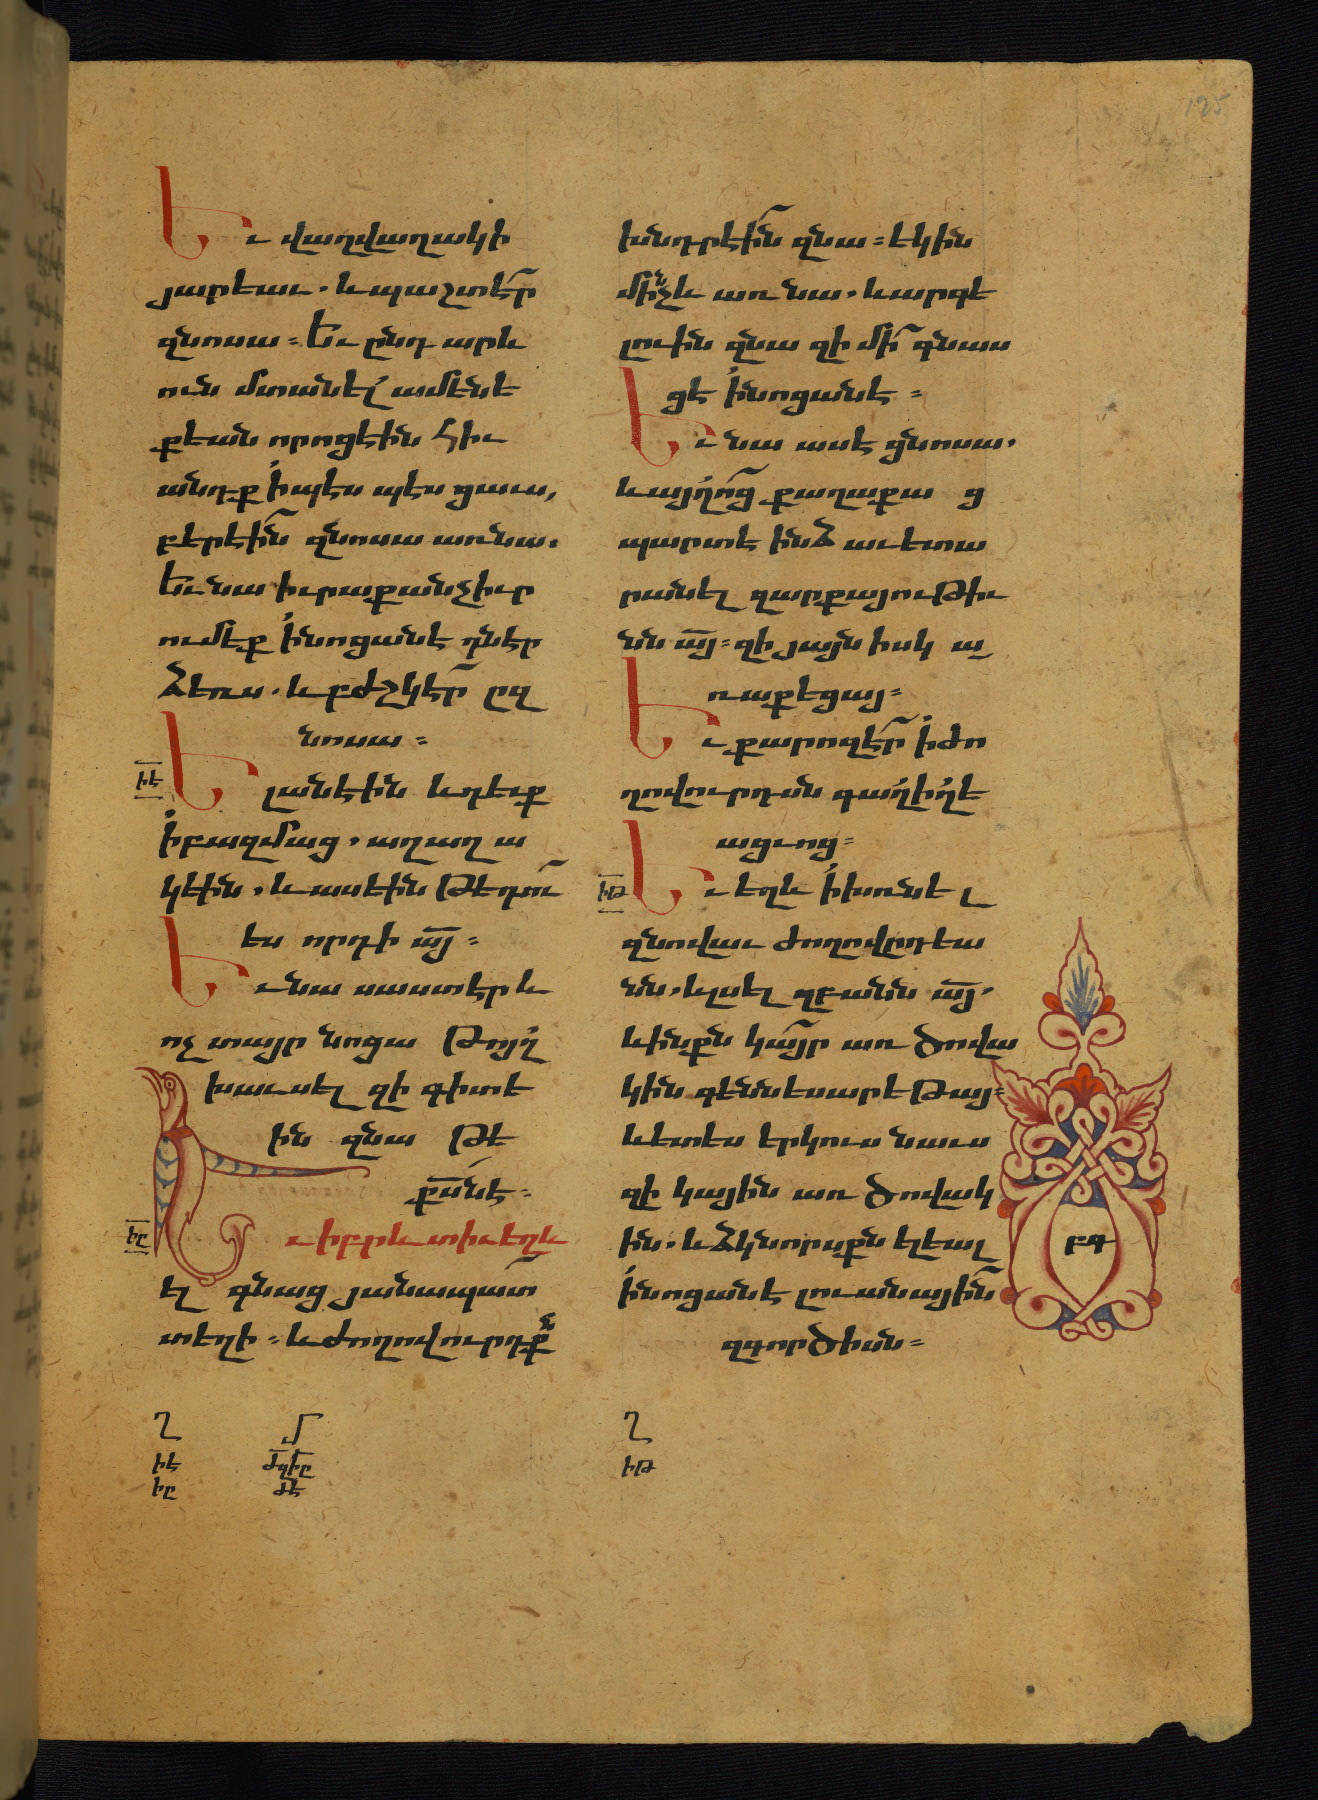 125
Եւ վաղվաղակի
յարեաւ. և պաշտէր
զնոսա։ Եւ ընդ արև
ուն մտանել ամենե
քեան որոց էին հիւ
անդք ի պէս պէս ցաւս,
բերէին զնոսա առ նա.
Եւ նա իւրաքանչիւր
ումեք ի նոցանէ դնէր
ձեռս. և բժշկէր ըզ
նոսա։
իէ
Ելանէին և դեւք
ի բազմաց. աղաղա
կէին. և ասէին թէ դու
ես որդի ա՟յ։
Եւ նա սաստէր և
ոչ տայր նոցա թոյլ
խաւսել զի գիտէ
ին զնա թէ
ք՟սն է։
իը
Եւ իբրև տիւ եղև
ել գնաց յանապատ
տեղի։ և ժողովուրդքն
խնդրէին զնա։ եկին
մինչև առ նա. և արգե
լուին զնա զի մի գնաս
ցէ ի նոցանէ։
Եւ նա ասէ ցնոսա.
և այլոց քաղաքաց
պարտ է ինձ աւետա
րանել զարքայութիւ
նն ա՟յ։ զի յայն իսկ ա
ռաքեցայ։
Եւ քարոզէր ի ժո
ղովուրդսն գալիլե
ացւոց։
իթ
Եւ եղև ի խռնել
զնովաւ ժողովրդեա
նն. և լսել զբանն ա՟յ.
և ինքն կայր առ ծովա
կին գեննեսարեթայ։
և ետես երկուս նաւս
զի կային առ ծովակ
ին. և ձկնորսքն ելեալ
ի նոցանէ լուանային
զգործիսն։
բգ
Ղ Մ Ղ
իէ իթ
իը